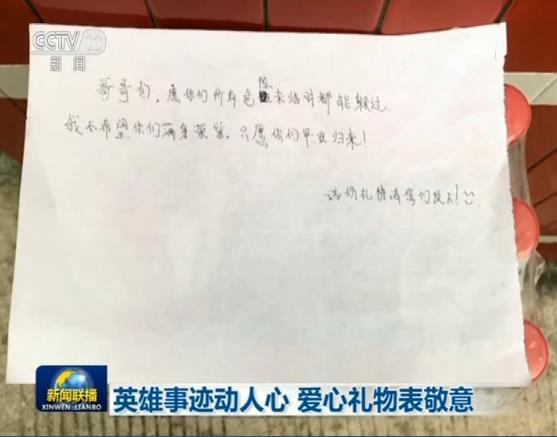 CCTV 13
新闻
哥哥们，愿你们所有危险来临时都能躲过.
我不希望你们满身荣誉，只愿你们平安归来！
这份礼物请你们收下！
新闻联播
XINWEN LIANBO
英雄事迹动人心 爱心礼物表敬意